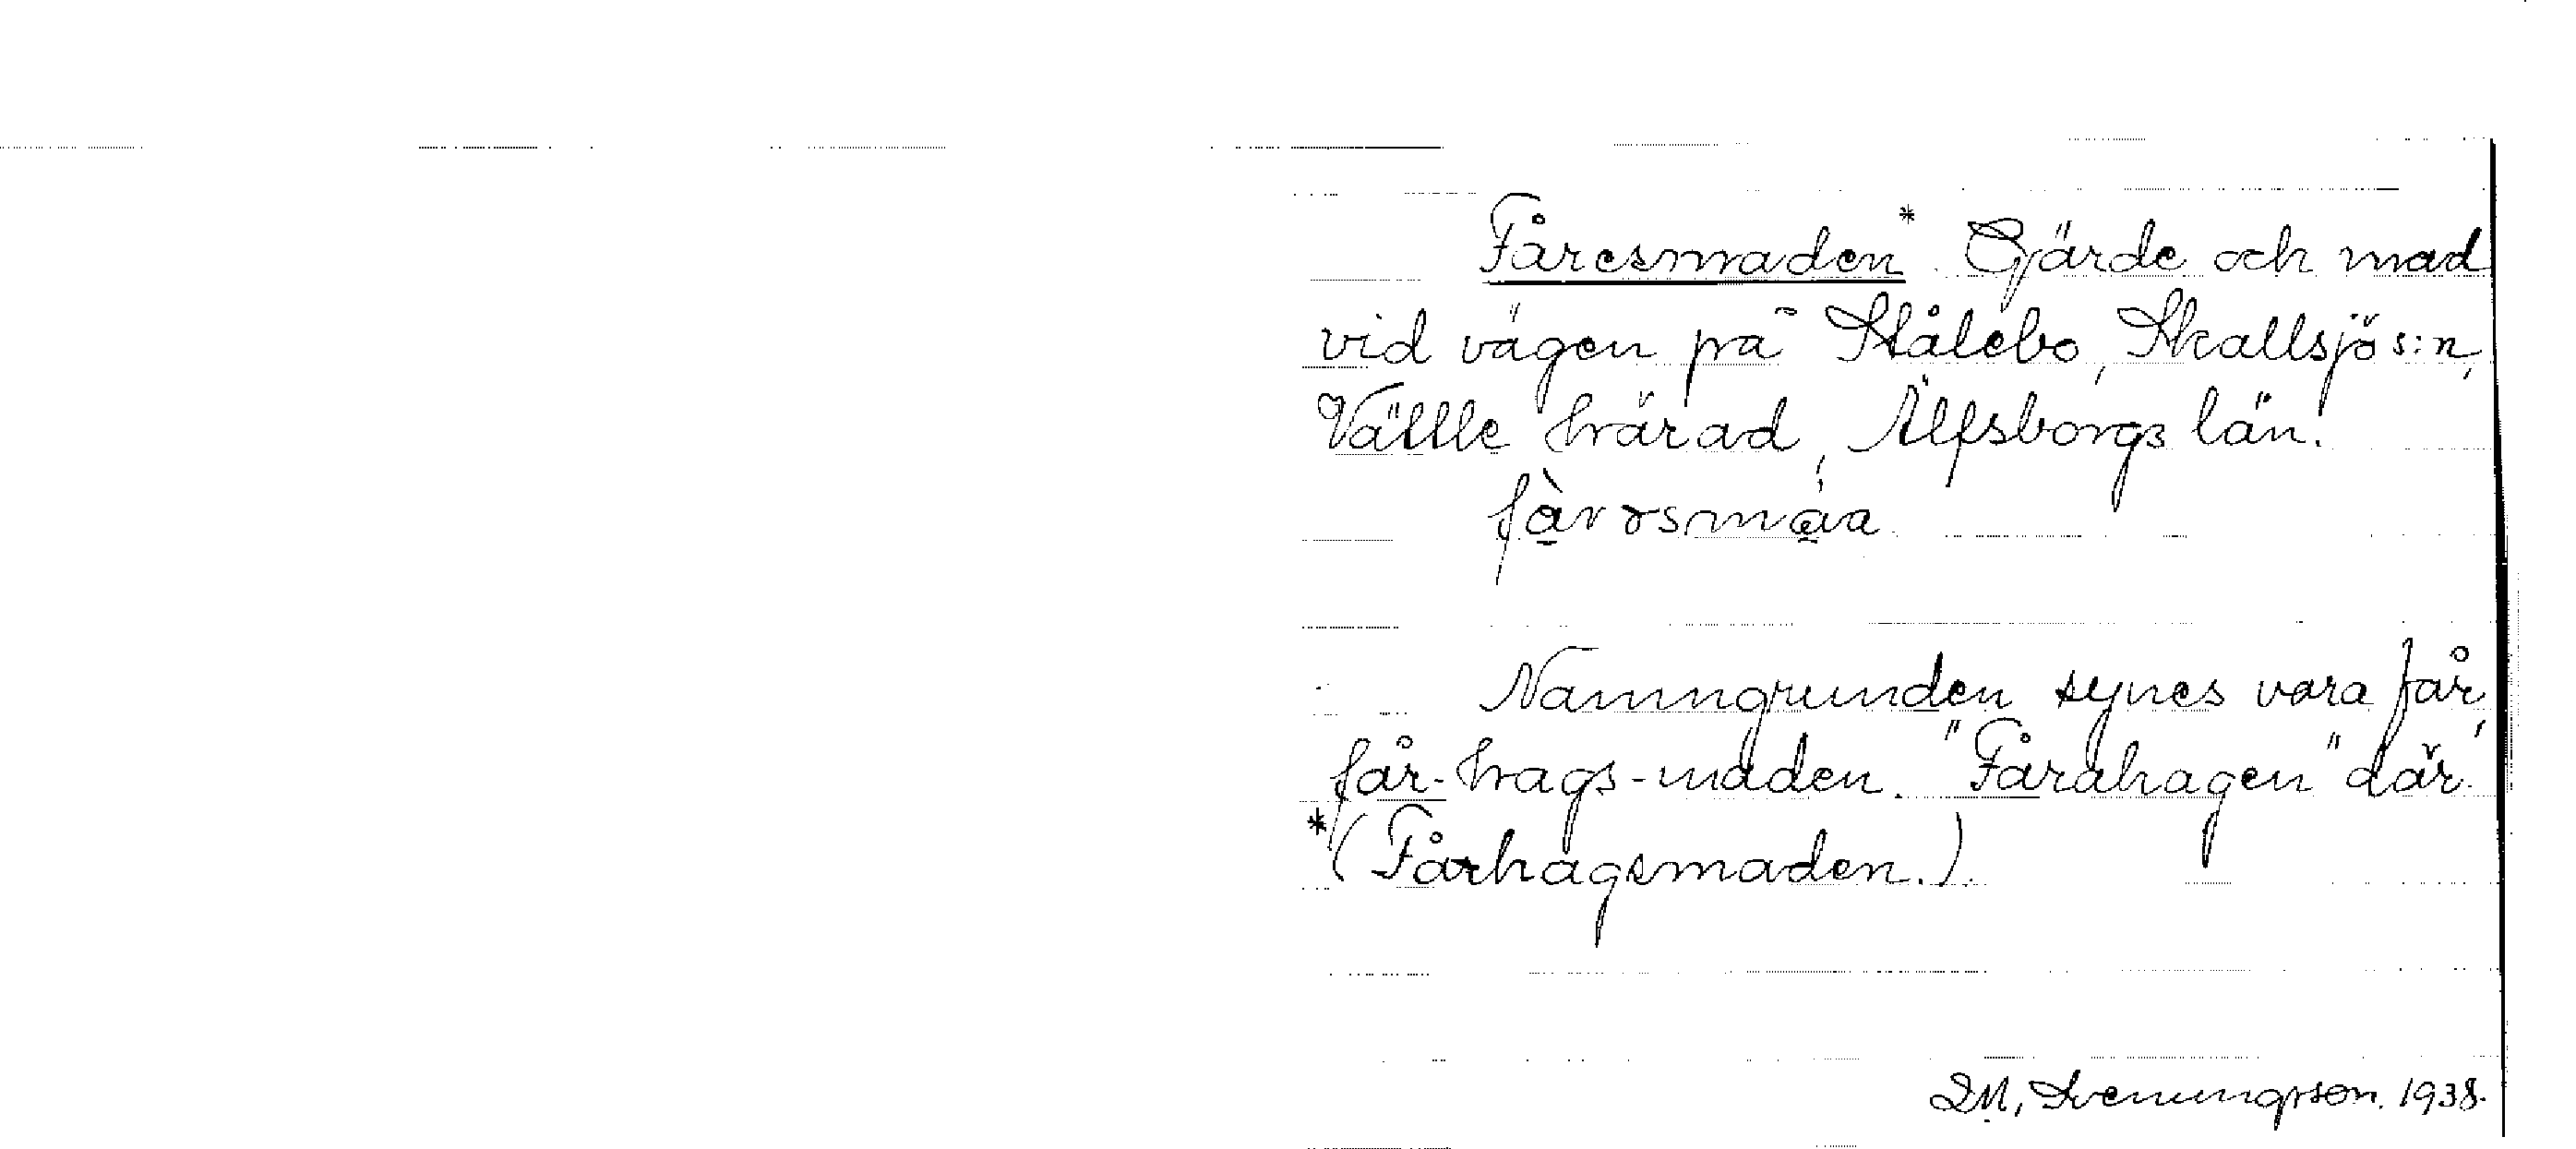 Fåresmaden* Gärde och mad
vid vägen på Stålebo, Skallsjö s:n,
Vättle härad, Älfsborgs län.
Namngrunden synes vara får,
får-hags-maden. "Fårahagen" där.
*(Fårhagsmaden.)
D.M. Svenungsson. 1938.